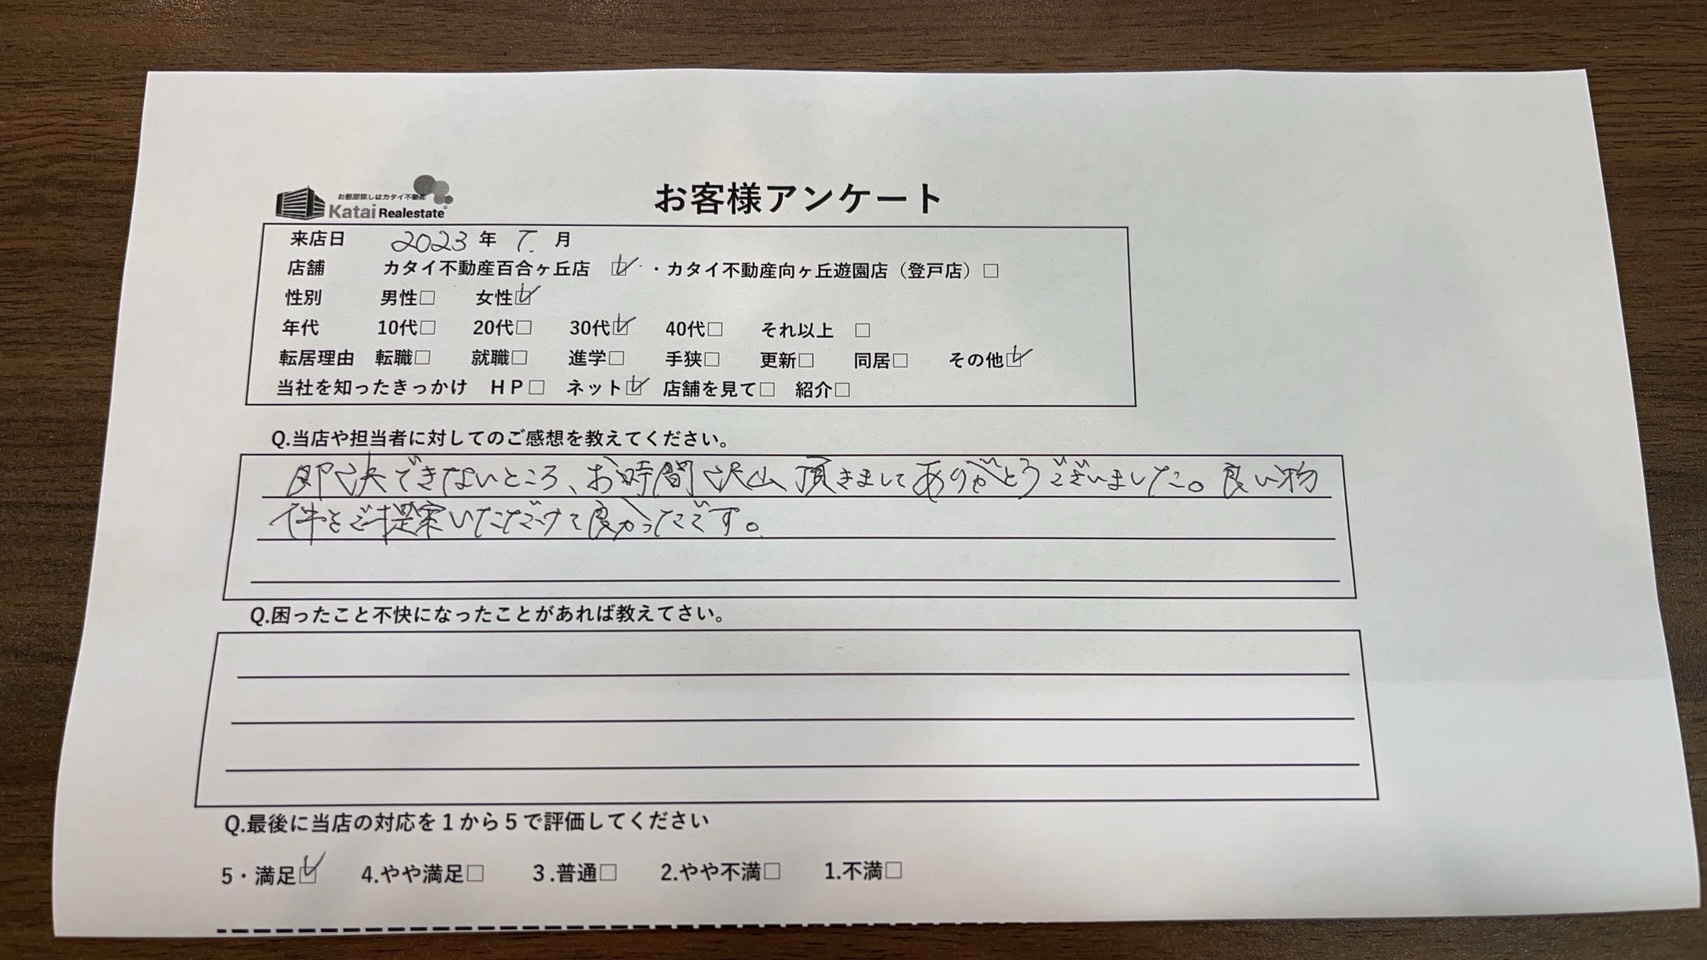 お部屋探しはカタイ不動産
Katai Realestate
お客様アンケート
来店日 2023年 7.月
店舗 カタイ不動産百合ヶ丘店 ☑・・カタイ不動産向ヶ丘遊園店（登戸店）□
性別 男性□ 女性☑
年代 10代□ 20代□ 30代☑ 40代□ それ以上 □
転居理由 転職□ 就職□ 進学□ 手狭□ 更新□ 同居□ その他☑
当社を知ったきっかけ ＨＰ□ ネット☑ 店舗を見て□ 紹介□
Q.当店や担当者に対してのご感想を教えてください。
即決できないところ、お時間沢山頂きましてありがとうございました。良い物
件をご提案いただけて良かったです。
Q.困ったこと不快になったことがあれば教えてさい。
Q.最後に当店の対応を１から５で評価してください
5・満足☑ 4.やや満足□ 3.普通□ 2.やや不満□ 1.不満□